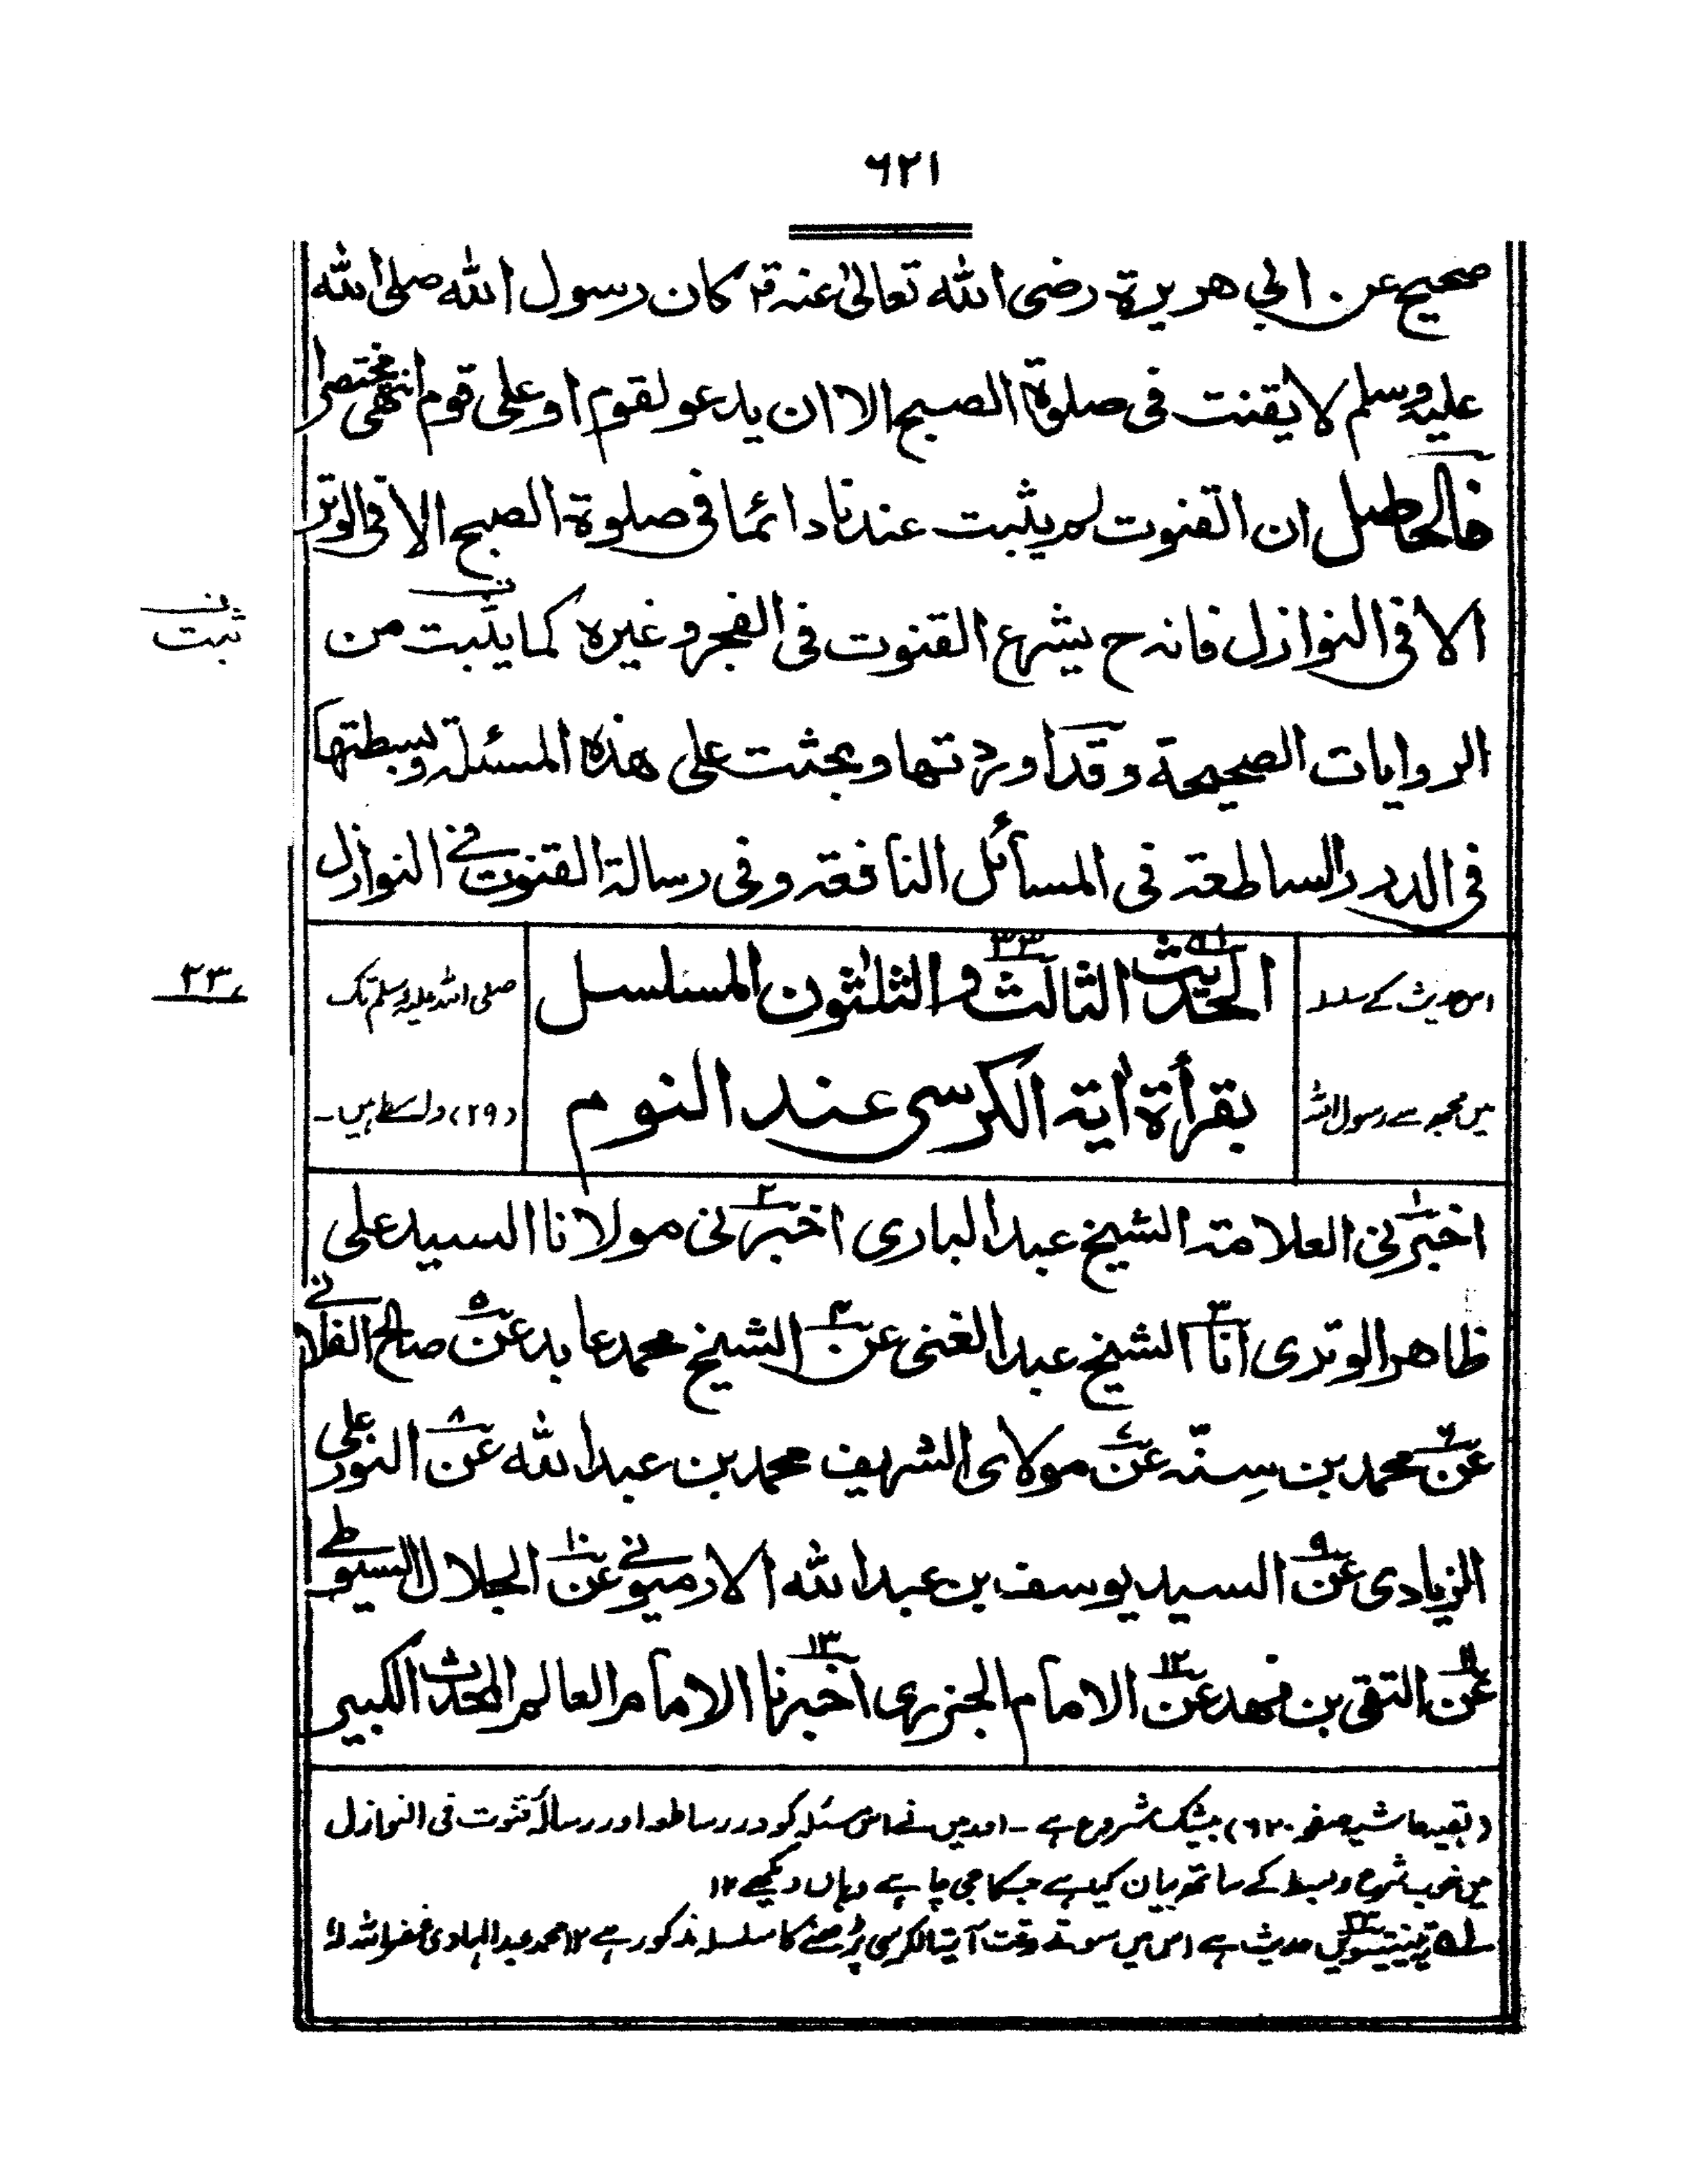 ٦٢١
صحيح عن ابي هريرة رضى الله تعالىٰ عنه قا كان رسول الله صلى الله
عليه وسلم لا يقنت فى صلوة الصبح الا ان يدعو لقوم او على قوم انتهى مختصرا
فالحاصل ان القنوت لم يثبت عندنا دائما فى صلوة الصبح الا فى الوتر
الا فى النوازل فانه ح يشرع القنوت فى الفجر وغيره كما يثبت من
ثبت
الروايات الصحيحة وقد اوردتها وبحثت على هذه المسئلة وبسطتها
فى الدرر الساطعة فى المسائل النافعة وفى رسالة القنوت فى النوازل
اس حدیث کے سلسلہ
میں مجھ سے رسول اللہ
الحديث الثالث و الثلٰثون المسلسل
٣٣
بقرأة اٰية الكرسى عند النوم
صلی اللہ علیہ وسلم تک
(۲۹) واسطے ہیں۔
٢٣
اخبرنى العلامة الشيخ عبد البارى اخبرنى مولانا السيد على
ظاهر الوترى انا الشيخ عبد الغنى عن الشيخ محمد عابد عن صالح الفلانے
عن محمد بن سِنّه عن مولاى الشريف محمد بن عبد الله عن النور على
الزيادى عن السيد يوسف بن عبد الله الارميونے عن الجلال السيوطے
عن التقى بن فهد عن الامام الجزرى اخبرنا الامام العالم المحدث الكبير
(بقیہ حاشیہ صفحہ ۶۲۰) بیشک مشروع ہے ۔ اور میں نے اس مسئلہ کو درر ساطعہ اور رسالہ قنوت فی النوازل
میں خوب شرح و بسط کے ساتھ بیان کیا ہے جسکا جی چاہے وہاں دیکھے ۱۲
لے تینتیسویں حدیث ہے اس میں سوتے وقت آیۃ الکرسی پڑھنے کا سلسلہ مذکور ہے ۱۲ محمد عبد الہادی غفر اللہ لہٗ